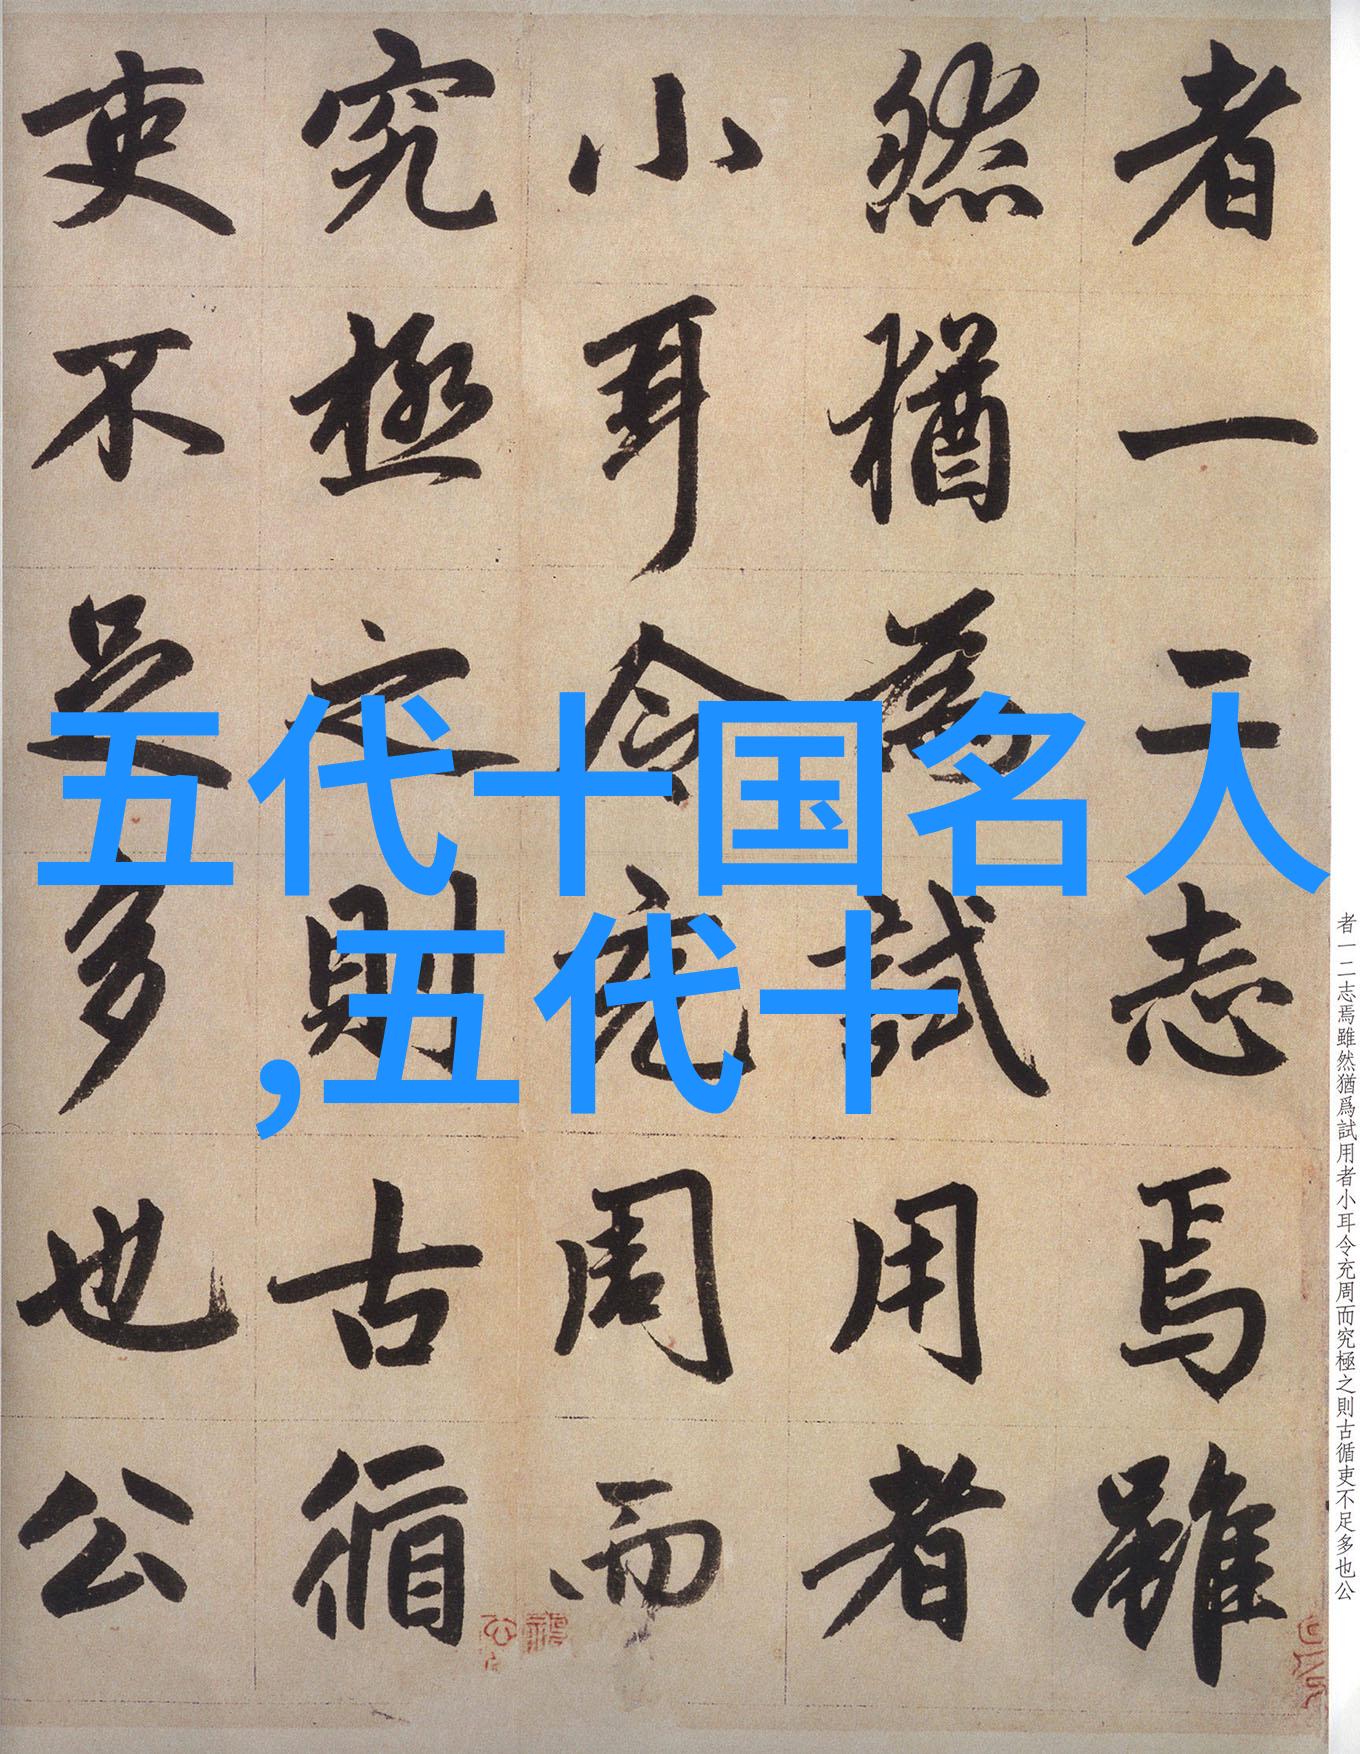 者一二志焉雖
然猶為試用者
小耳令充周而
究極之則古循
吏不足多也公
五代十国名人
,五代十
者一二志焉雖然猶爲試用者小耳令充周而究極之則古循吏不足多也公